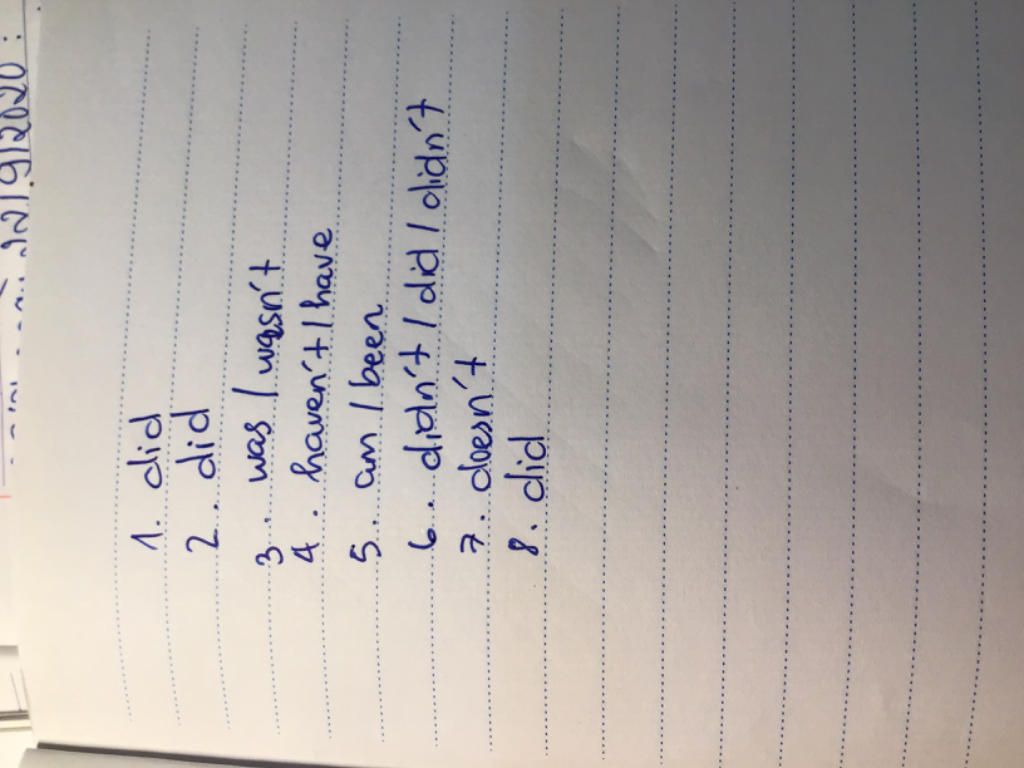 22/9/2020:
1. did
2. did
3. was / wasn't
4. haven't / have
5. am / been
6. didn't / did / didn't
7. doesn't
8. did